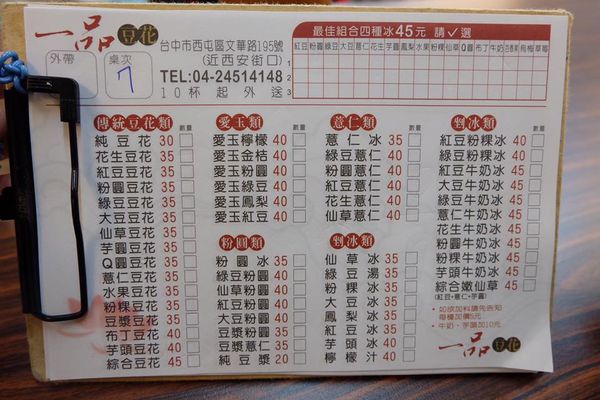 一品豆花
外帶
桌次
7
台中市西屯區文華路195號
(近西安街口)
TEL:04-24514148
10杯起外送
最佳組合四種冰45元 請✓選
紅豆 粉圓 綠豆 大豆 薏仁 花生 芋圓 鳳梨 水果 粉粿 仙草 Q圓 布丁 牛奶 烏梅 草莓
1
2
3
傳統豆花類 數量
純豆花 30
花生豆花 35
紅豆豆花 35
粉圓豆花 35
綠豆豆花 35
大豆豆花 35
仙草豆花 35
芋圓豆花 35
Q圓豆花 35
薏仁豆花 35
水果豆花 35
粉粿豆花 35
豆漿豆花 35
布丁豆花 40
芋頭豆花 40
綜合豆花 45
愛玉類 數量
愛玉檸檬 40
愛玉金桔 40
愛玉粉圓 40
愛玉綠豆 40
愛玉鳳梨 40
愛玉紅豆 40
粉圓類
粉圓冰 35
綠豆粉圓 35
仙草粉圓 35
紅豆粉圓 35
大豆粉圓 35
豆漿粉圓 35
豆漿薏仁 35
純豆漿 20
薏仁類 數量
薏仁冰 35
綠豆薏仁 40
紅豆薏仁 40
花生薏仁 40
仙草薏仁 40
剉冰類
仙草冰 35
綠豆湯 35
粉粿冰 35
大豆冰 35
鳳梨冰 35
紅豆冰 35
芋頭冰 40
檸檬汁 40
剉冰類 數量
紅豆粉粿冰 40
綠豆粉粿冰 40
紅豆牛奶冰 45
綠豆牛奶冰 45
大豆牛奶冰 45
薏仁牛奶冰 45
花生牛奶冰 45
粉圓牛奶冰 45
粉粿牛奶冰 45
芋頭牛奶冰 45
綜合嫩仙草 45
(紅豆+薏仁+芋圓)
•如欲加料請先告知
每種加價5元
•牛奶、芋頭加10元。
一品豆花